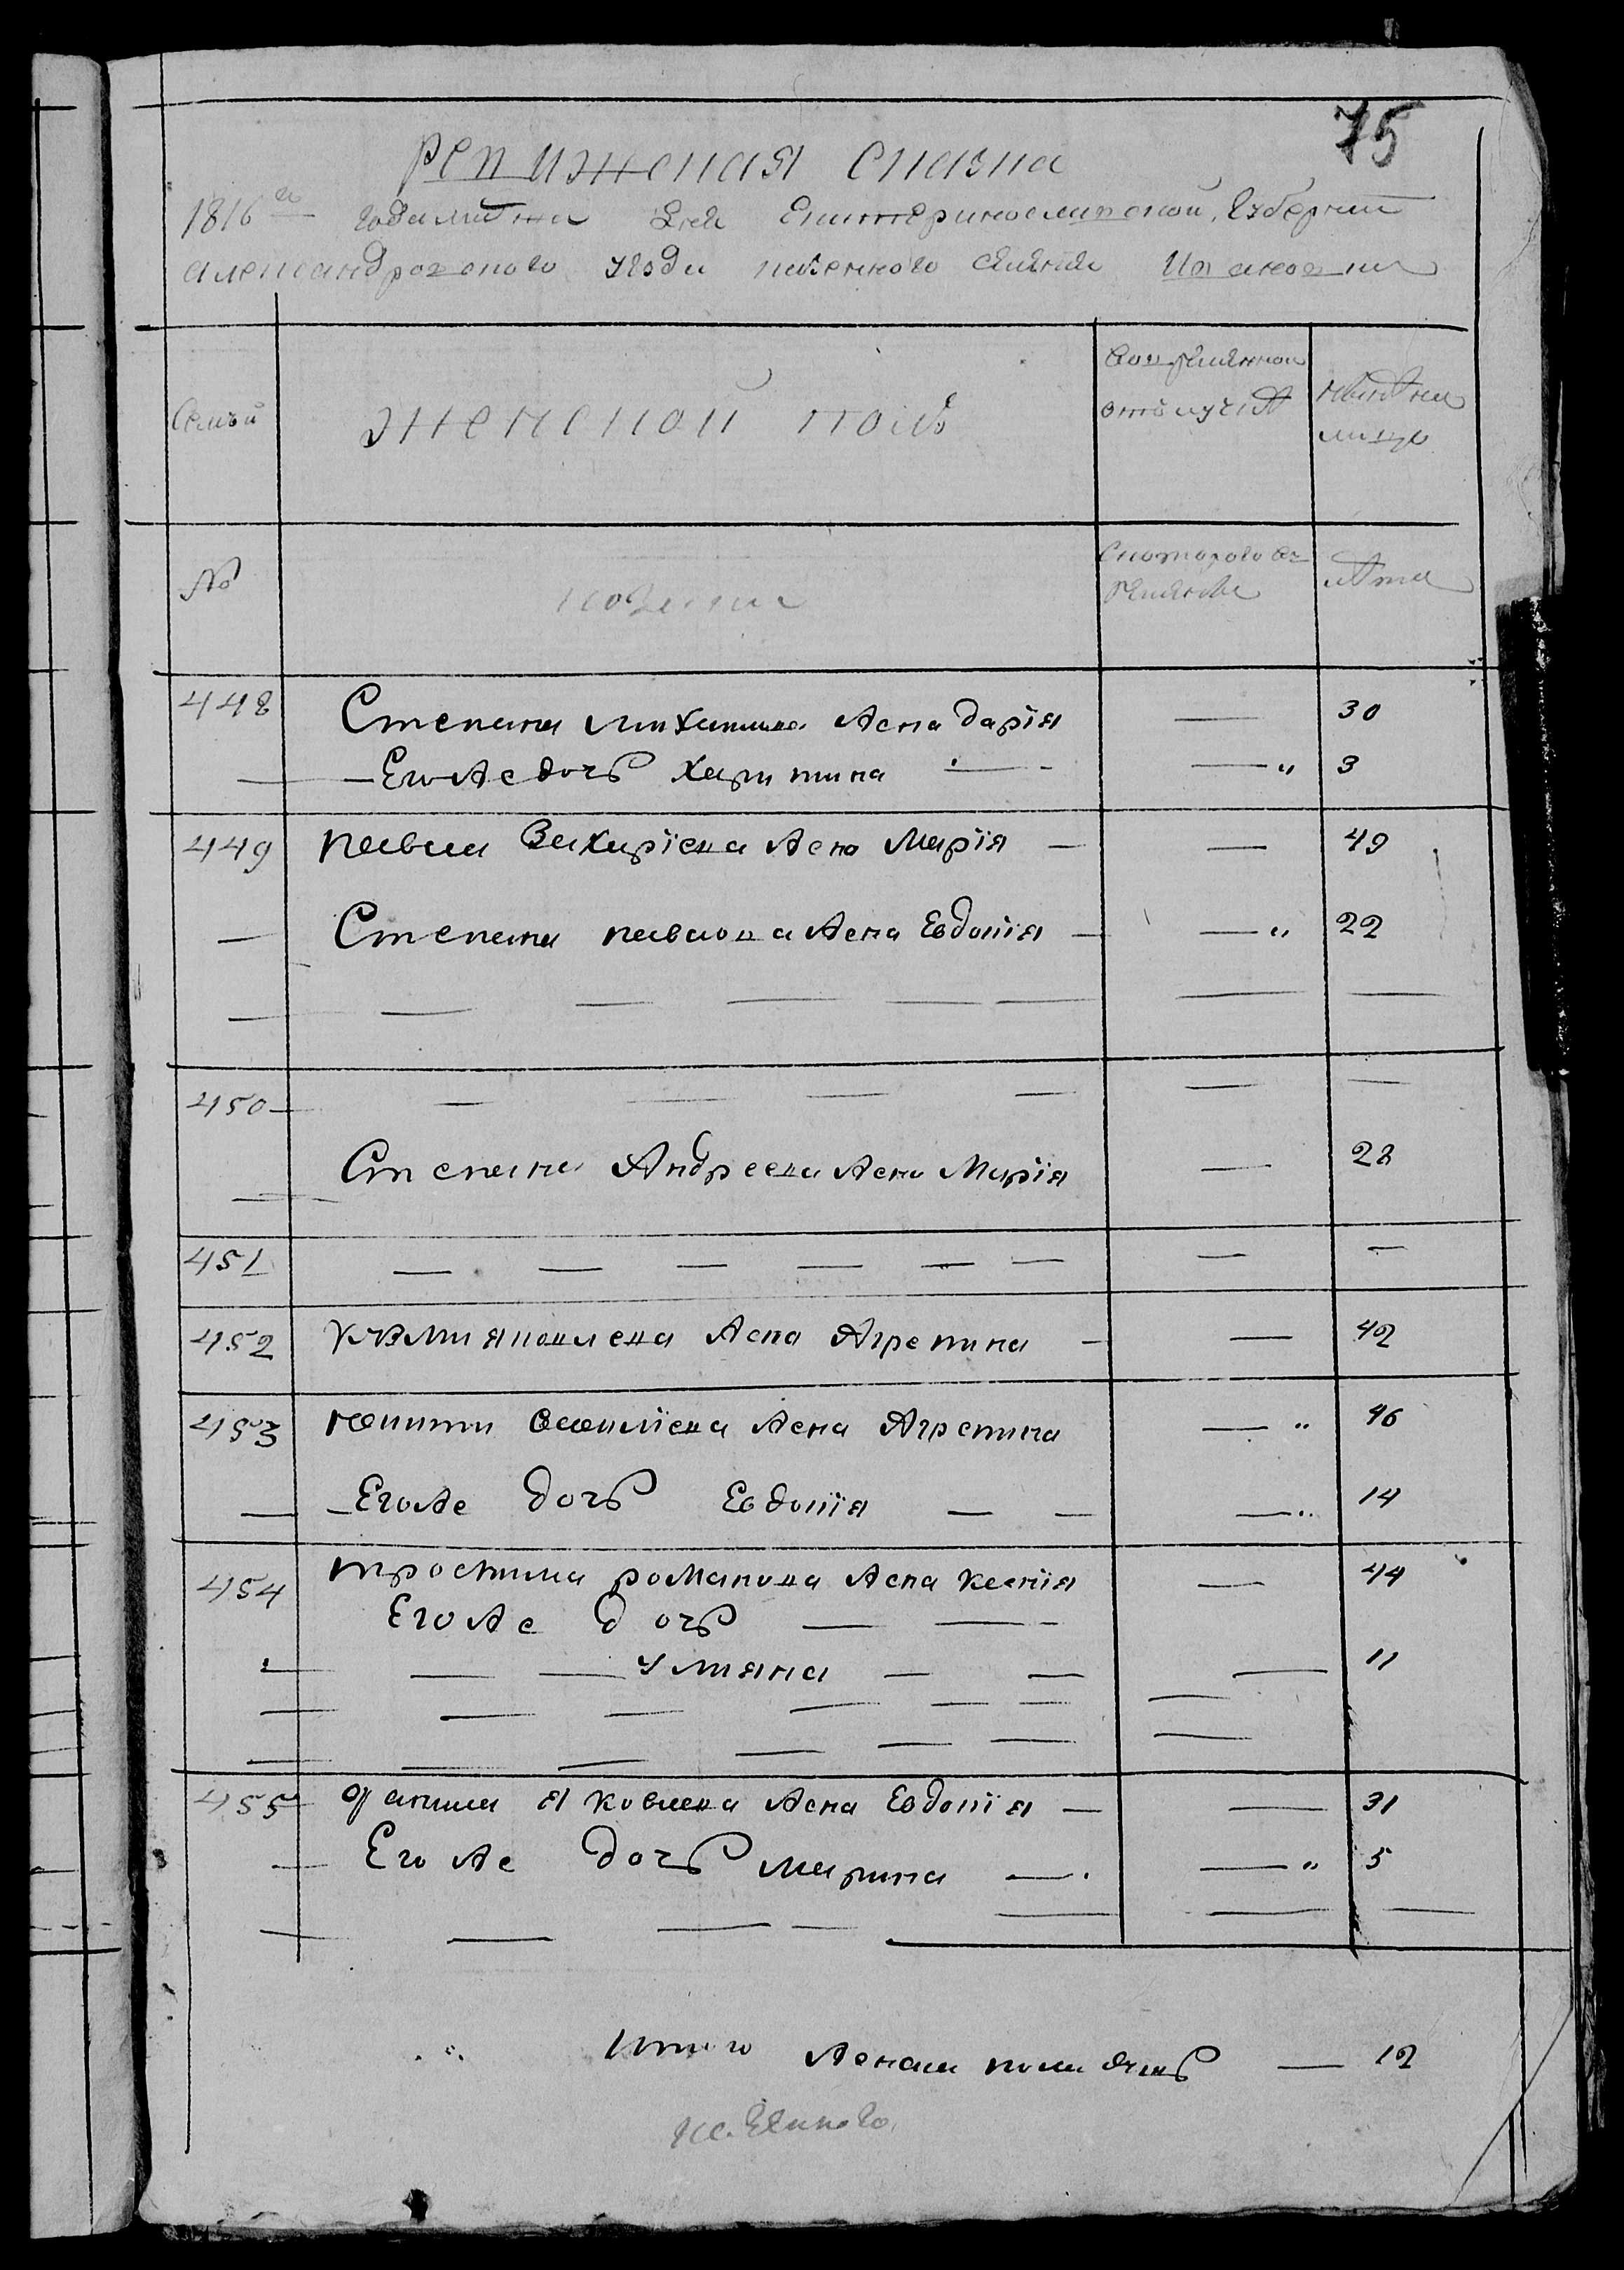 75
Ревижская сказка
1816го года дня Екатеринослаской Губернии
Александровского уезда казенного селения
Семьи
женской пол
во временной отлучке
ныне на лицо
№
казенни
С которого времени
лета
448 Степана Михаилова Жена дарїя — 30
— Его Же дочь Харитина — — " 3
449 павла Захарїева Жена Марїя — — 49
— Степана павлова Жена Евдокїя — — " 22
— — — — — — — —
450 — — — — — —
— Степана Андреева Жена Марїя — 28
451 — — — — — — — —
452 Козми яковлева Жена Агрепина — — 42
453 никити василїева Жена Агрепина — " 46
— Его Же дочь Евдокїя — — — " 14
454 трофима романова Жена ксенїя — 44
Его Же дочь — —
— — — улияна — — — 11
— — — — — — —
— — — — — — —
455 данила яковлева Жена Евдокїя — — 31
— Его Же дочь марина — — " 5
— — — — — — —
Итого Женска пола душъ — 12